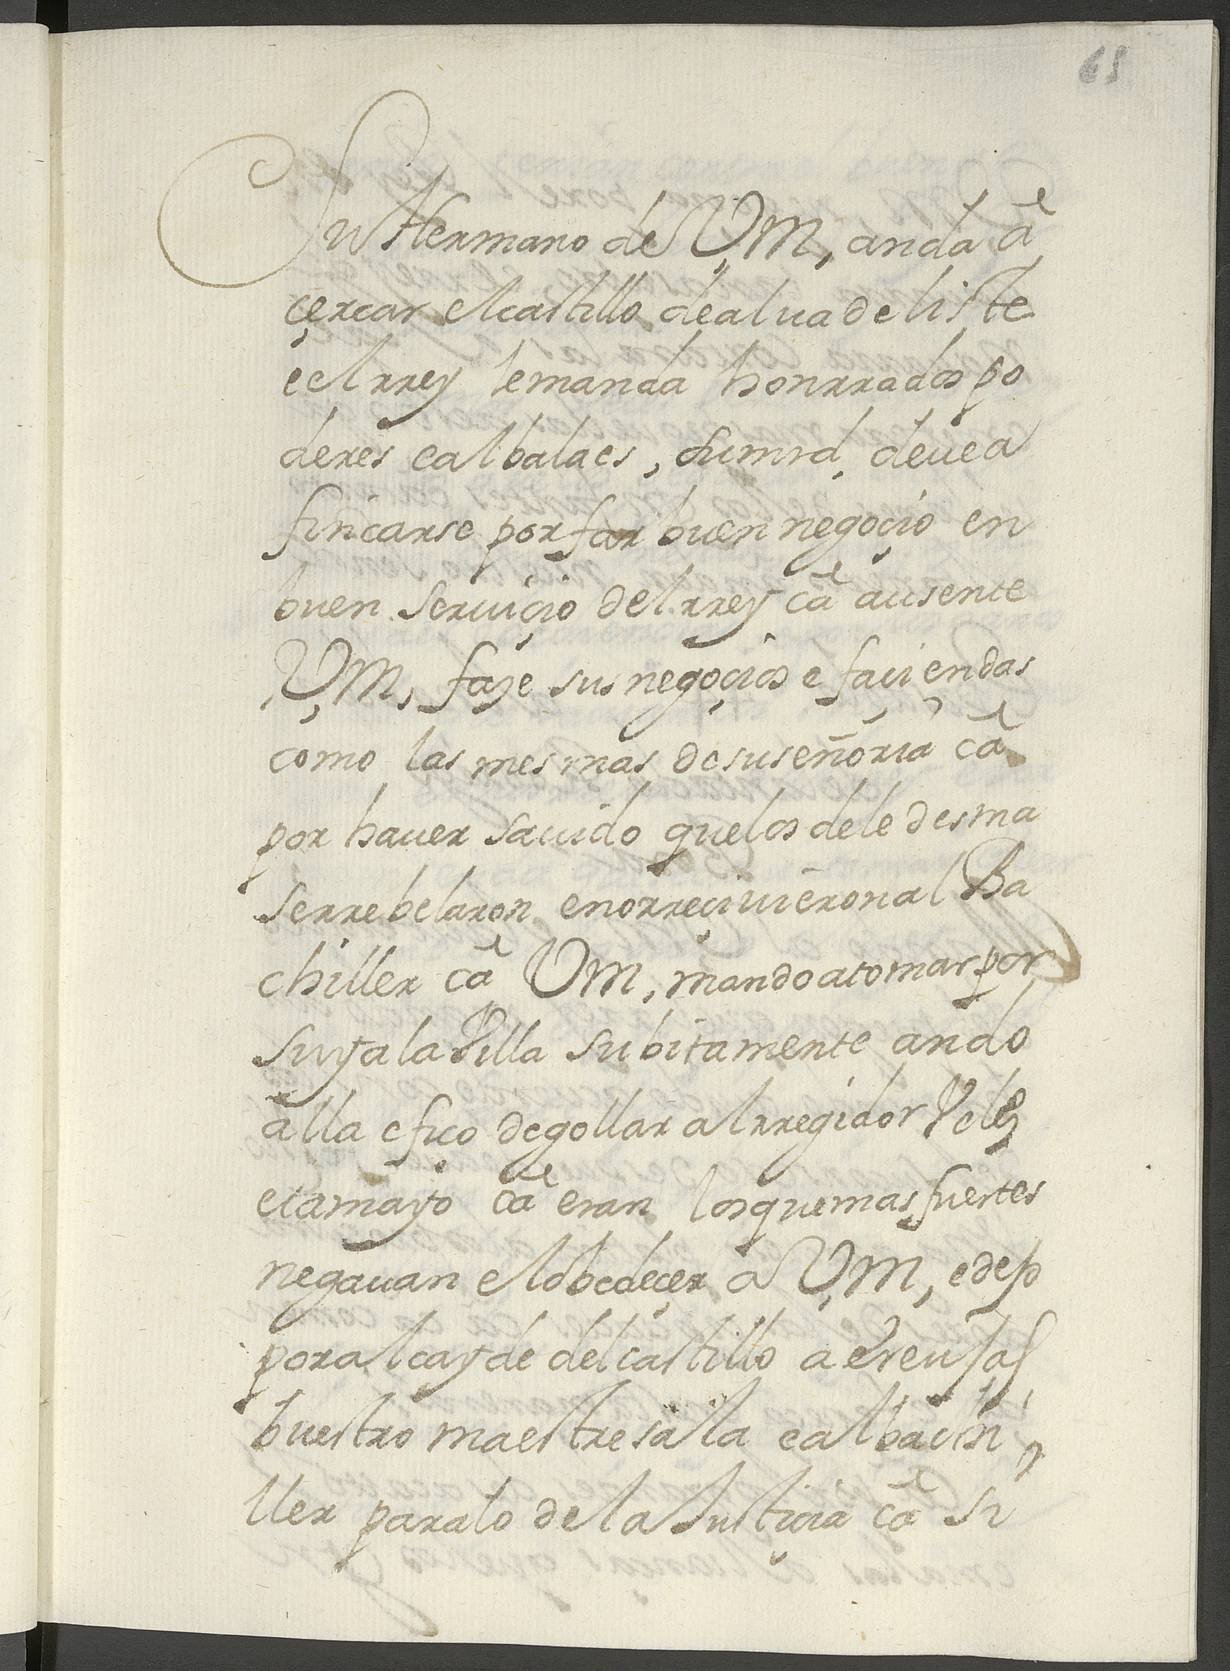 65
Su Hermano de V,M, anda â
çercar elcastillo dealuadeliste
eelrrey lemanda honrrados po
deres ealbalaes, sumrd, deuea
fincarse por far buen negoçio en
buen seruiçio delrrey câ ausente
V,M, faze susnegoçios e faciendas
como las mesmas desuseñoria câ
por hauer sauido quelos deledesma
serrebelaron enorreçiuieronal Ba
chiller câ VM, mandoatomar por
suyalaVilla subitamente ando
alla efico degollar alrregidor Velez
etamayo câ eran losquemas fuertes
negauan elobedeçer a V,M, edejo
poralcayde delcastillo a
buestro maestresala ealbachi
ller paralo delaJusticia câ si